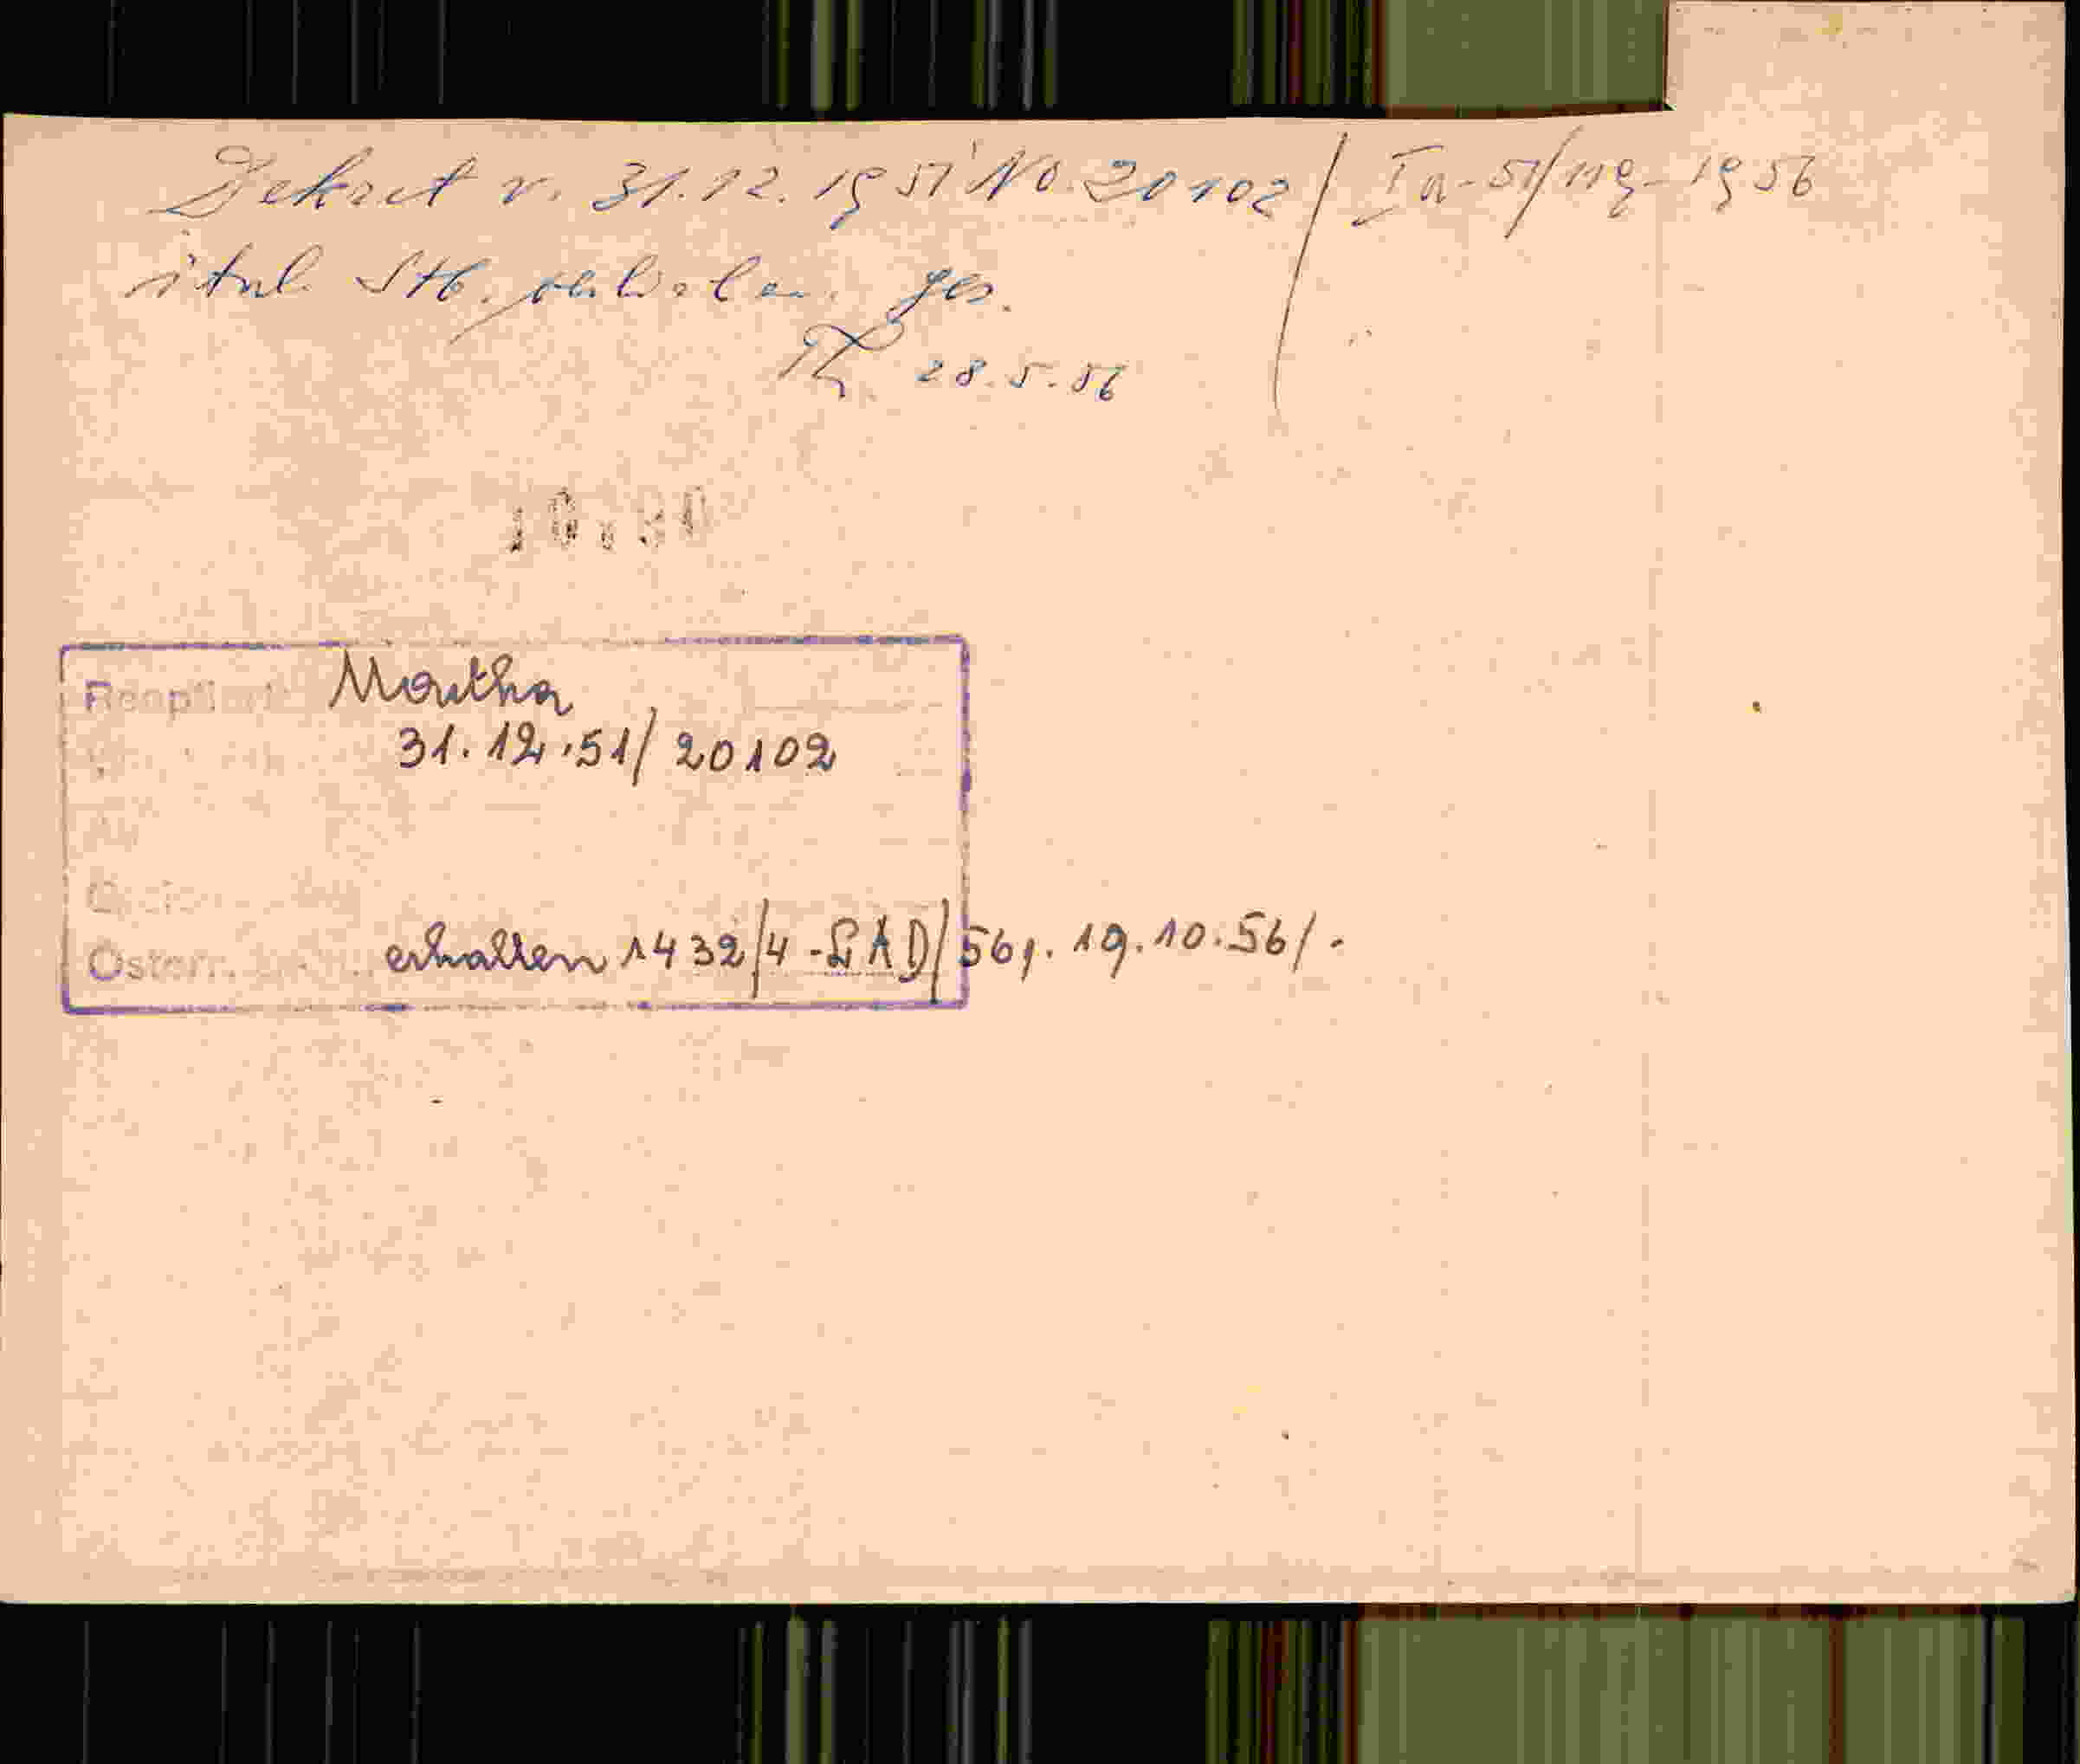 Dekret v. 31.12.1951 No. 20102 / Ia-51/119-1956
ital. Stb. erhalten. ges.
28.5.56
10.50
Reoptiert: Martha
31.12.51/20102
Österr. erhalten 1432/4-LAD/56, 19.10.56/.